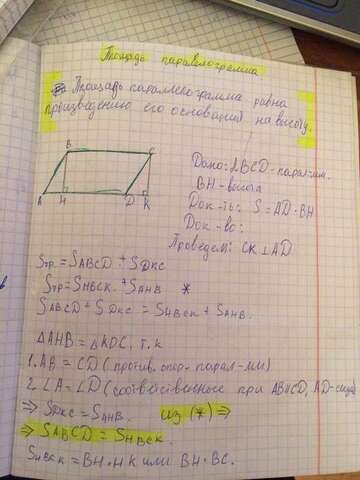 Площадь параллелограмма
Площадь параллелограмма равна
произведению его оснований на высоту.
B C
A H D K
Дано: ABCD - парал-мм.
BH - высота
Док-ть: S = AD · BH
Док-во:
Проведем: CK ⊥ AD
Sтр = SABCD + SDKC
Sтр = SHBCK + SAHB *
SABCD + SDKC = SHBCK + SAHB.
△AHB = △KDC, т.к
1. AB = CD (против. стор. парал-мм)
2. ∠A = ∠D (соответственные при AB||CD, AD-секущ)
⇒ SDKC = SAHB. из (*) ⇒
⇒ SABCD = SHBCK.
SHBCK = BH · HK или BH · BC.